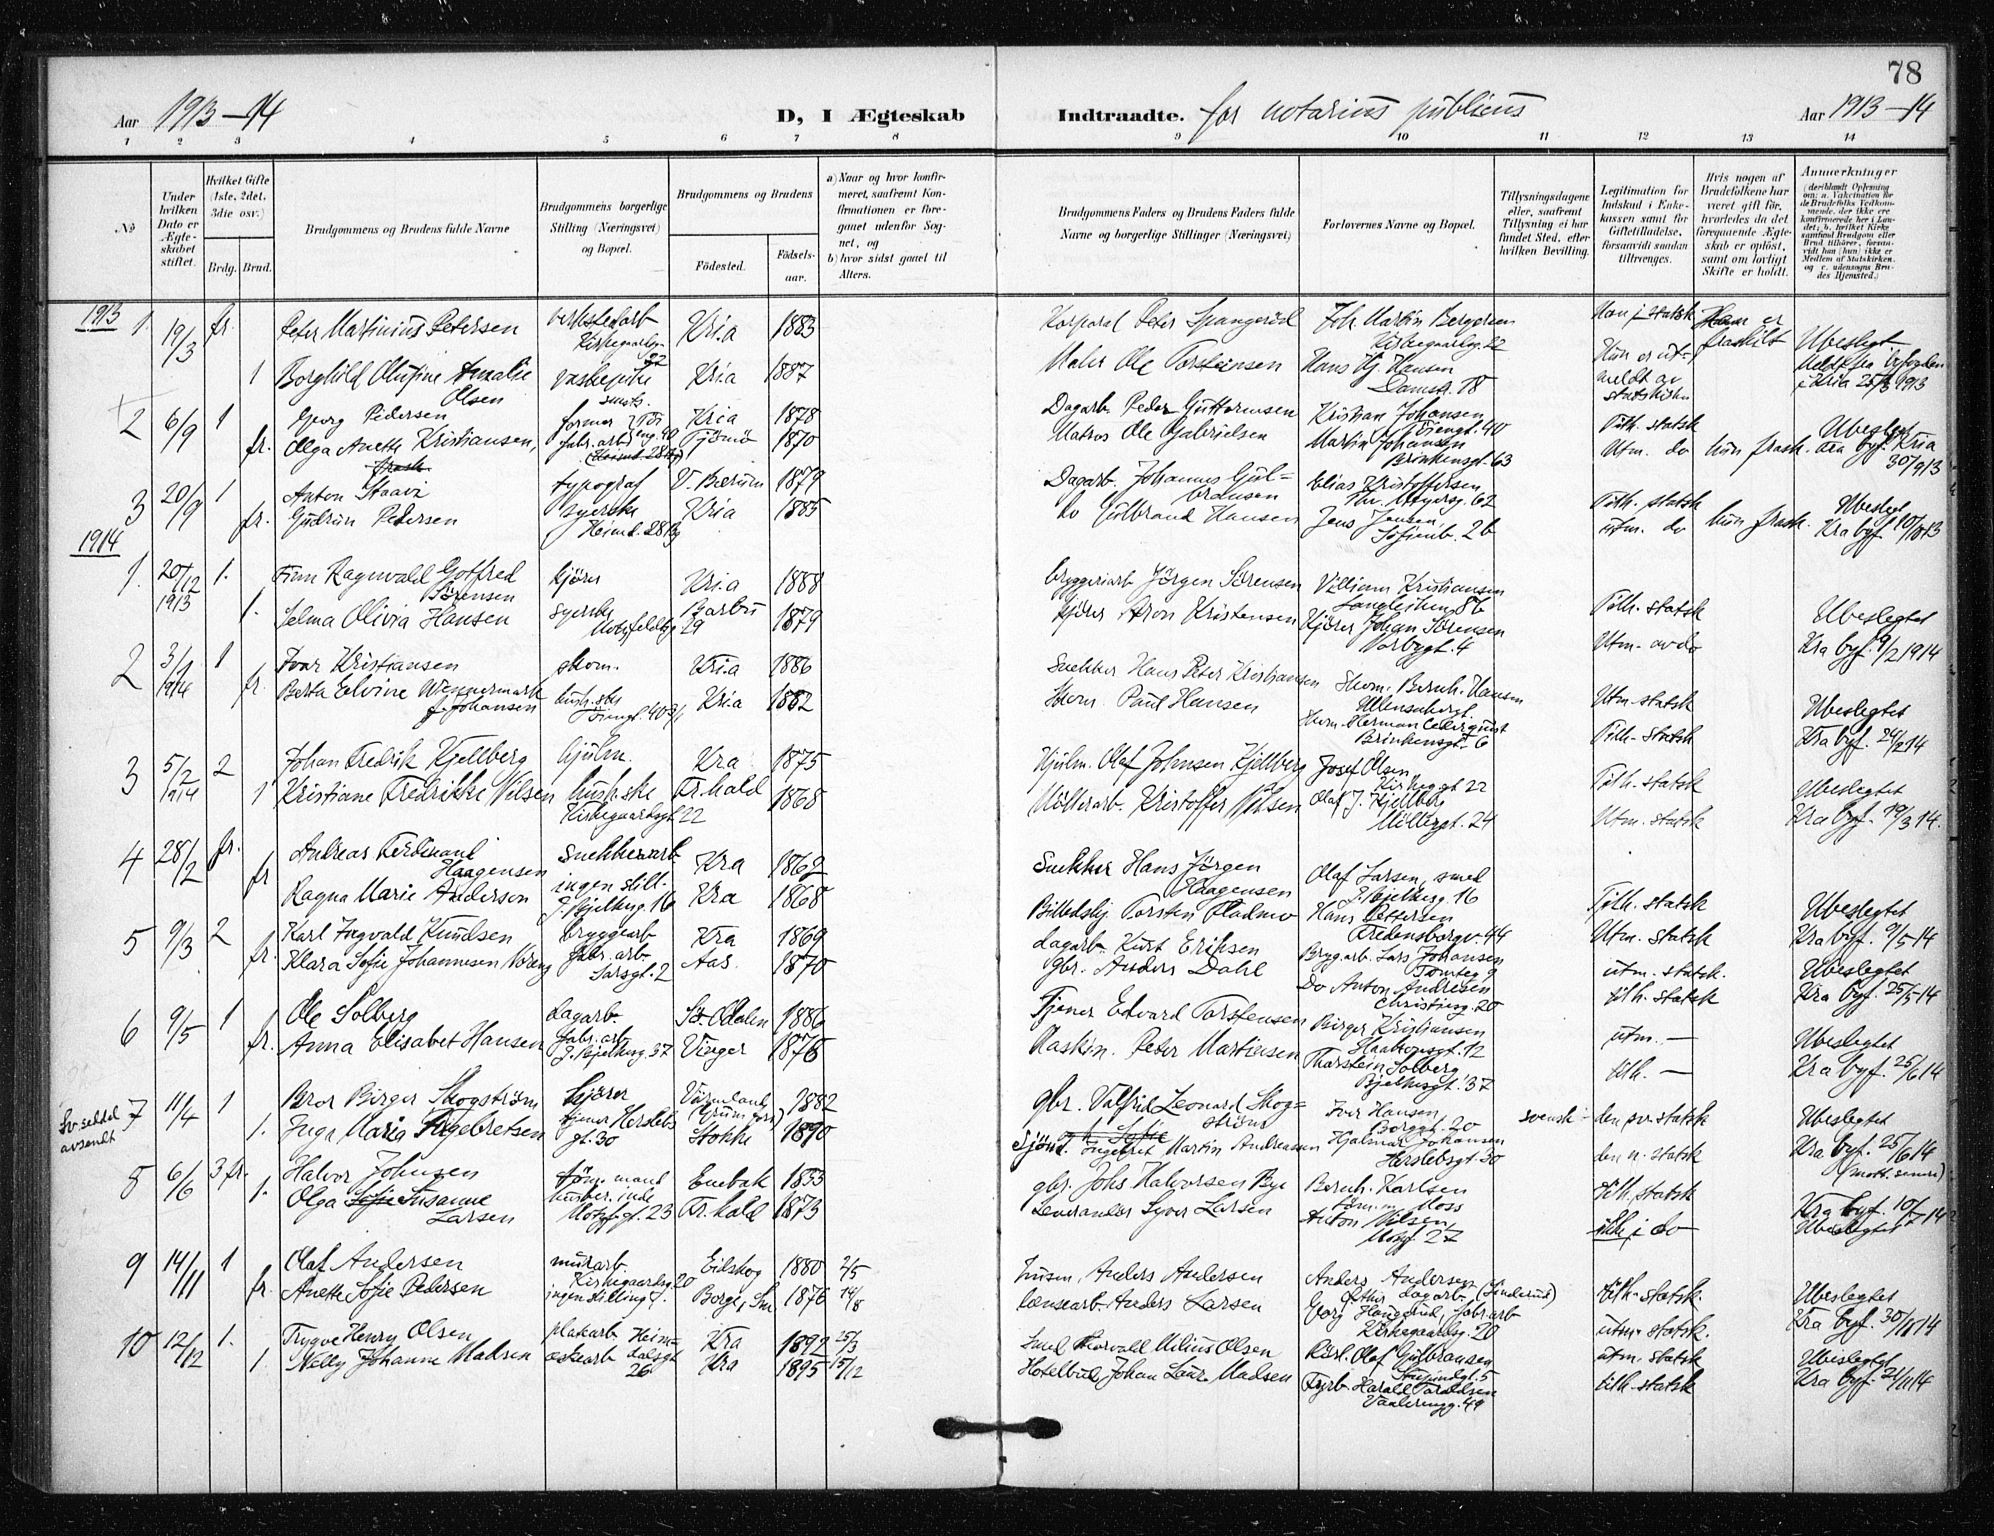 78
Aar 1913-14 D, I Ægteskab Indtraadte. for notarius publicus Aar 1913-14
1 2 3 4 5 6 7 8 9 10 11 12 13 14
No
Under hvilken Dato er Ægteskabet stiftet.
Hvilket Gifte (1ste, 2det, 3die osv.)
Brdg. Brud.
Brudgommens og Brudens fulde Navne
Brudgommens borgerlige Stilling (Næringsvei) og Bopæl.
Brudgommens og Brudens
Fødested.
Fødselsaar.
a) Naar og hvor konfirmeret, saafremt Konfirmationen er foregaaet udenfor Sognet, og
b) hvor sidst gaaet til Alters.
Brudgommens Faders og Brudens Faders fulde Navne og borgerlige Stillinger (Næringsvei)
Forlovernes Navne og Bopæl.
Tillysningsdagene eller, saafremt Tillysning ei har fundet Sted, efter hvilken Bevilling.
Legitimation for Indskud i Enkekassen samt for Giftetilladelse, forsaavidt saadan tiltrænges.
Hvis nogen af Brudefolkene har været gift før, hvorledes da det foregaaende Ægteskab er opløst, samt om lovligt Skifte er holdt.
Anmerkninger
(deriblandt Oplysning om: a. Vakcination for de Brudefolks Vedkommende, der ikke ere konfirmerede her i Landet; b. hvilket Kirkesamfund Brudgom eller Brud tilhører, forsaavidt han (hun) ikke er Medlem af Statskirken, og c. udensogns Brudes Hjemsted.)
1913
1. 19/3 fr. Peter Martinius Petersen verkstedarb Kirkegaardsg. 22 Kria 1883 Korporal Peter Spangerud Joh. Martin Bergersen Kirkegaardsg. 22 Han i statsk Han er fraskilt Ubeslegt
1 Borghild Olufine Amalie Olsen vaskepike smsts. Kria 1887 Maler Ole Torstensen Hans Hj. Hansen 18 Hun er utmeldt av statskirken Meldt fra byfogden i Kria 25/3 1913
2 6/9 1 Georg Pedersen former Kria 1878 Dagarb. Peder Guttormsen Kristian Johansen 40 Tilh. statsk Ubeslegt
fr. Olga Anette Kristiansen, fabr.arb Tjömö 1870 Matros Ole Gabrielsen Martin Johansen Brinkensgt. 63 Utm. do hun frask. Fra byf. Kria 30/9 13
3 20/9 1 Anton Staavi typograf V. Bærum 1879 Dagarb. Johannes Gulbrandsen Elias Kristoffersen Thv. Meyersg. 62 Tilh. statsk Ubeslegt
fr. Gudrun Petersen syerske Heimd. 28 Kria 1885 do Gulbrand Hansen Jens Jensen Sofienb. 2b utm. do hun frask. Kra byf. 10/10 13
1914
1. 20/12 1913 1. Finn Ragnvald Gotfred Sörensen kjörer Kria 1888 bryggeriarb Jörgen Sörensen Villiam Kristiansen 8b Tilh. statsk Ubeslegtet
1. Selma Olivia Hansen syerske Motzfeldtsg 29 Barbu 1879 kjörer Aron Kristensen Kjörer Johan Sörensen Norbygt. 4 Utm. av do Kra byf. 9/2 1914
2 3/1 1914 1 Ivar Kristiansen skom. Kria 1886 Snekker Hans Peter Kristiansen Skom. Bernh. Hansen Utm. statsk Ubeslegtet
fr. Berta Elvine Wennermark f. Johansen Kria 1882 Skom. Paul Hansen Skom. Herman Brinkensgt. 6 Tilh. statsk Kra byf. 24/2 14
3 5/2 1914 2 Johan Fredrik Kjellberg hjulm. Kra 1875 Hjulm. Olaf Johnsen Kjellberg Josef Olsen 22 Tilh. statsk Ubeslegtet
1 Kristiane Fredrikke Nilsen Kirkegaardsgt 22 Fr.hald 1868 Möllerarb. Kristoffer Nilsen Olaf J. Kjellberg Möllergt. 24 Utm. statsk Kra byf. 19/3 14.
4 28/2 fr. Andreas Ferdinand Haagensen snekkerarb Kra 1862 Snekker Hans Jörgen Haagensen Olaf Larsen, smed J. Bjelkesg. 16 Tilh. statsk Ubeslegtet
fr Ragna Marie Anderson ingen still. J. Bjelkesg. 16 Kra 1868 Billedskj. Torsten Fladmo Hans Pettersen Fredensborgv. 44 Utm. statsk Kra byf. 9/5 14
5 9/3 2 Karl Ingvald Knudsen bryggearb Kra 1869 dagarb. Kurt Eriksen Brygarb. Lars Johansen Tomteg 9 utm. statsk. Ubeslegtet
fr. Klara Sofie Johannesen Noreng fabr. arb Larsgt. 2 Aas 1870 gbr. Anders Dahl Do Anton Andresen Christiesg. 20 tilh. statsk Kra byf. 25/5 14
6 9/5 1 Ole Solberg dagarb. Sö. Odalen 1886 Tjener Edvard Torstensen Birger Kristiansen Haakonsgt. 12 utm. — Ubeslegtet
fr. Anna Elisabet Hansen fabr. arb. J. Bjelkesg. 37 Vinger 1876 Maskin. Peter Martinsen Tharstein Solberg Bjelkesgt. 37 tilh. — Kra byf. 25/6 14
Sv. seddel avsendt
7 11/4 1 Bror Birger Skogström kjörer Värmland (Grums) 1882 gbr. Valfrid Leonard Skogström Iver Hansen Borggt. 20 svensk - den sv. statsk Ubeslegtet
1. Inga Maria Ingebretsen tjener Herslebsgt. 30 Stokke 1890 Sjöm. Ingebret Martin Andreassen Hjalmar Johansen Herslebsgt. 30 den n. statsk Kra byf. 25/6 14
8 6/6 3 fr. Halvor Johnsen töm.mand Enebak 1853 gbr. Johs Halvorsen Bye Bernh. Karlsen Moss tilh. statsk Kra byf. 10/7 14
1. Olga Sofie Susanne Larsen Motzf.gt. 23 Fr.hald 1873 Leverandör Syver Larsen Anton Nilsen, Motzf. 27 ikke i do Ubeslegtet
9 14/11 1 Olaf Andersen murarb. Kirkegaardsg 20 Eidskog 1880 2/5 husm. Anders Andersen Anders Andersen dagarb. tilh. statsk. Ubeslegtet
fr. Anette Sofie Pedersen ingen stilling Borge, Sm 1876 14/8 lænsearb. Anders Larsen Georg Haugerud, fabr.arb Kirkegaardsg. 20 utm. statsk. Kra byf. 30/11 14
10 12/12 1. Trygve Henry Olsen plakarb Heimdalsgt 26 Kra 1892 25/3 Smed Thorvald Milius Olsen Rörl. Olaf Gulbransen 5 utm. statsk Ubeslegtet
1. Nelly Johanne Madsen eskearb Kra 1895 15/12 Hotelbud Johan Laur. Madsen Fyrb. Harald Taraldsen Vaalerengg. 49 tilh. statsk Kra byf.